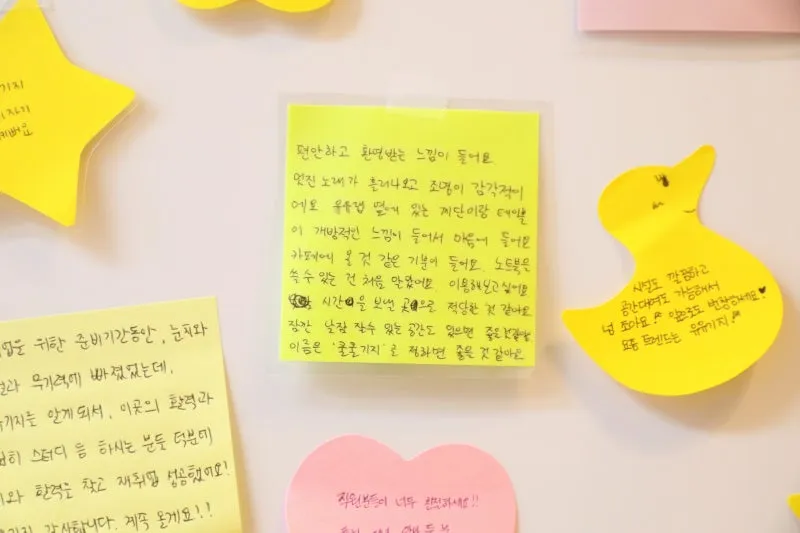 기지
기자기
편안하고 환영받는 느낌이 들어요
멋진 노래가 흘러나오고 조명이 감각적이
에요 유유랩 옆에 있는 계단이랑 테이블
이 개방적인 느낌이 들어서 마음에 들어요
카페에 온 것 같은 기분이 들어요. 노트북을
쓸 수 있는 건 처음 알았어요. 이용해보고싶어요
시간을 보낼 곳으로 적당한 것 같아요
잠깐 낮잠 잘 수 있는 공간도 있으면 좋을것같아요
이름은 '쿨쿨기지'로 정하면 좋을 것 같아요
시설도 깔끔하고
공간대여도 가능해서
넘 좋아요! 앞으로도 번창하세요!
요즘 트렌드는 유유기지!
업을 위한 준비기간동안, 눈치와
무기력에 빠졌었는데,
기지를 알게되서, 이곳의 활력과
히 스터디 등 하시는 분들 덕분에
와 활력을 찾고 재취업 성공했어요!
감사합니다. 계속 올게요!!
직원분들이 너무 친절하세요!!